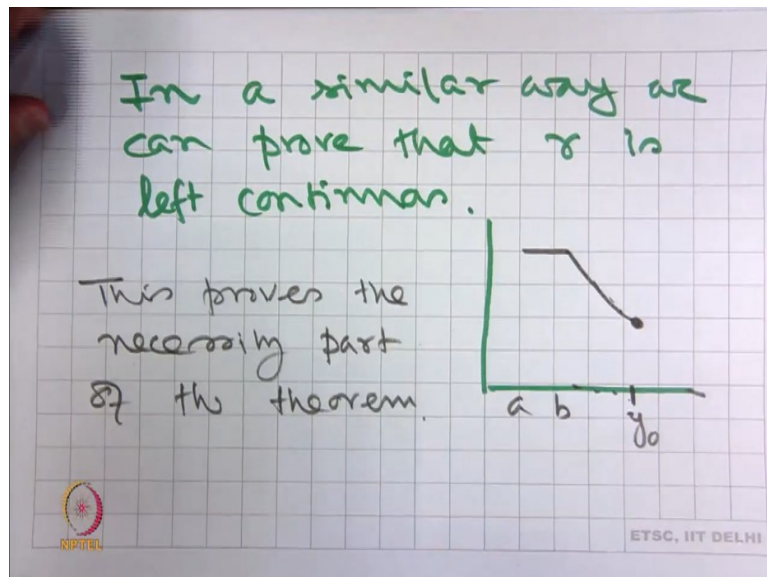 In a similar way we
can prove that r is
left continuous.
This proves the
necessity part
of the theorem.
a b
y₀
NPTEL
ETSC, IIT DELHI